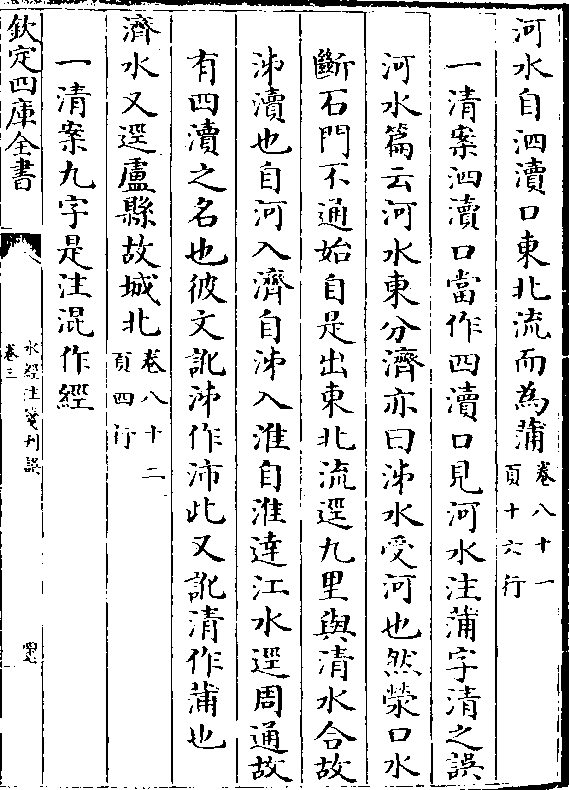 河水自泗瀆口東北流而為蒲卷八十一
頁十六行
一清案泗瀆口當作四瀆口見河水注蒲字清之誤
河水篇云河水東分濟亦曰泲水受河也然滎口水
斷石門不通始自是出東北流逕九里與清水合故
泲瀆也自河入濟自泲入淮自淮達江水逕周通故
有四瀆之名也彼文訛泲作沛此又訛清作蒲也
濟水又逕盧縣故城北卷八十二
頁四行
一清案九字是注混作經
欽定四庫全書
水經注箋刊誤
卷三